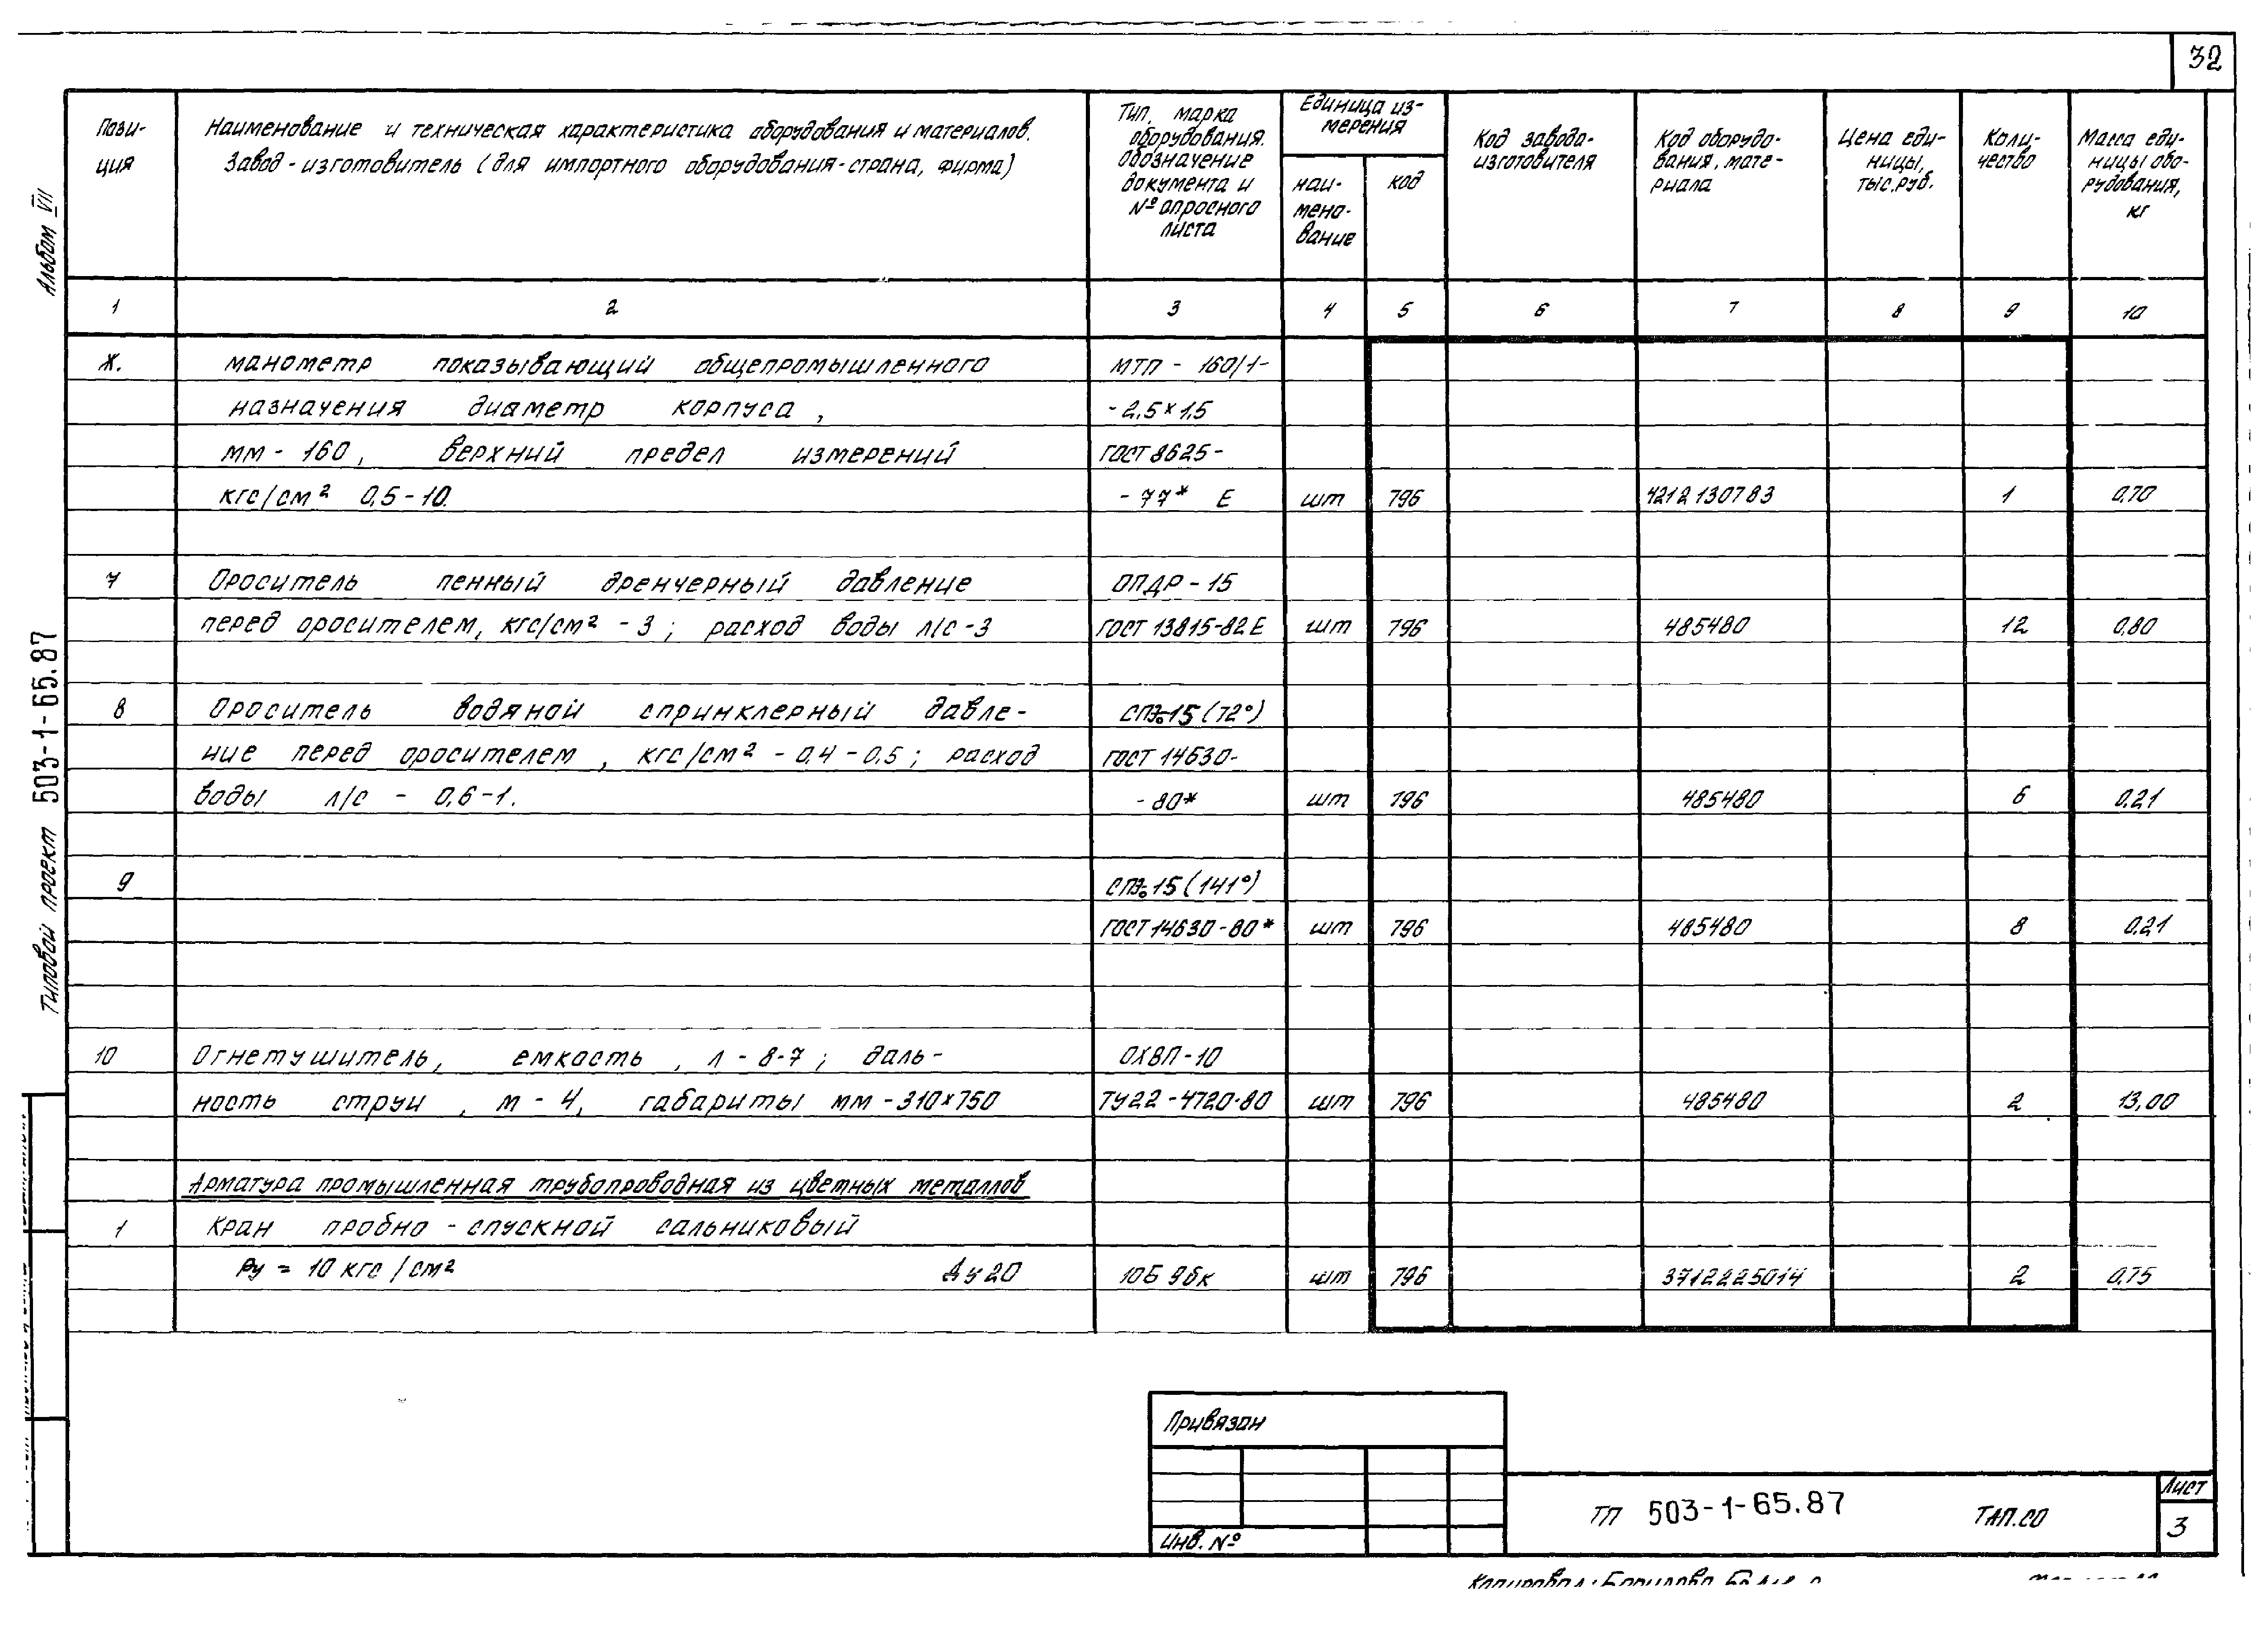 32
Пози-
ция
Наименование и техническая характеристика оборудования и материалов.
Завод-изготовитель (для импортного оборудования-страна, фирма)
Тип, марка
оборудования.
Обозначение
документа и
№ опросного
листа
Единица из-
мерения
наи-
мено-
вание
код
Код завода-
изготовителя
Код оборудо-
вания, мате-
риала
Цена еди-
ницы,
тыс.руб.
Коли-
чество
Масса еди-
ницы обо-
рудования,
кг
1 2 3 4 5 6 7 8 9 10
Ж. манометр показывающий общепромышленного МТП - 160/1-
назначения диаметр корпуса, -2,5×1,5
мм - 160, верхний предел измерений ГОСТ 8625-
кгс/см² 0,5-10. -77* Е шт 796 4212130783 1 0,70
7 Ороситель пенный дренчерный давление ОПДР-15
перед оросителем, кгс/см² - 3; расход воды л/с-3 ГОСТ 13815-82Е шт 796 485480 12 0,80
8 Ороситель водяной спринклерный давле- (72°)
ние перед оросителем, кгс/см² - 0,4 - 0,5; расход ГОСТ 14630-
воды л/с - 0,6-1. -80* шт 796 485480 6 0,21
9 (141°)
ГОСТ 14630-80* шт 796 485480 8 0,21
10 Огнетушитель, емкость, л - 8-7; даль- ОХВП-10
ность струи, м - 4, габариты мм-310×750 ТУ22-4720-80 шт 796 485480 2 13,00
Арматура промышленная трубопроводная из цветных металлов
1 Кран пробно-спускной сальниковый
Ру = 10 кгс/см² Ду20 10Б 9бк шт 796 3712225014 2 0,75
Альбом VII
Типовой проект 503-1-65.87
Привязан
Инв. №
ТП 503-1-65.87 ТАП.СО
Лист
3